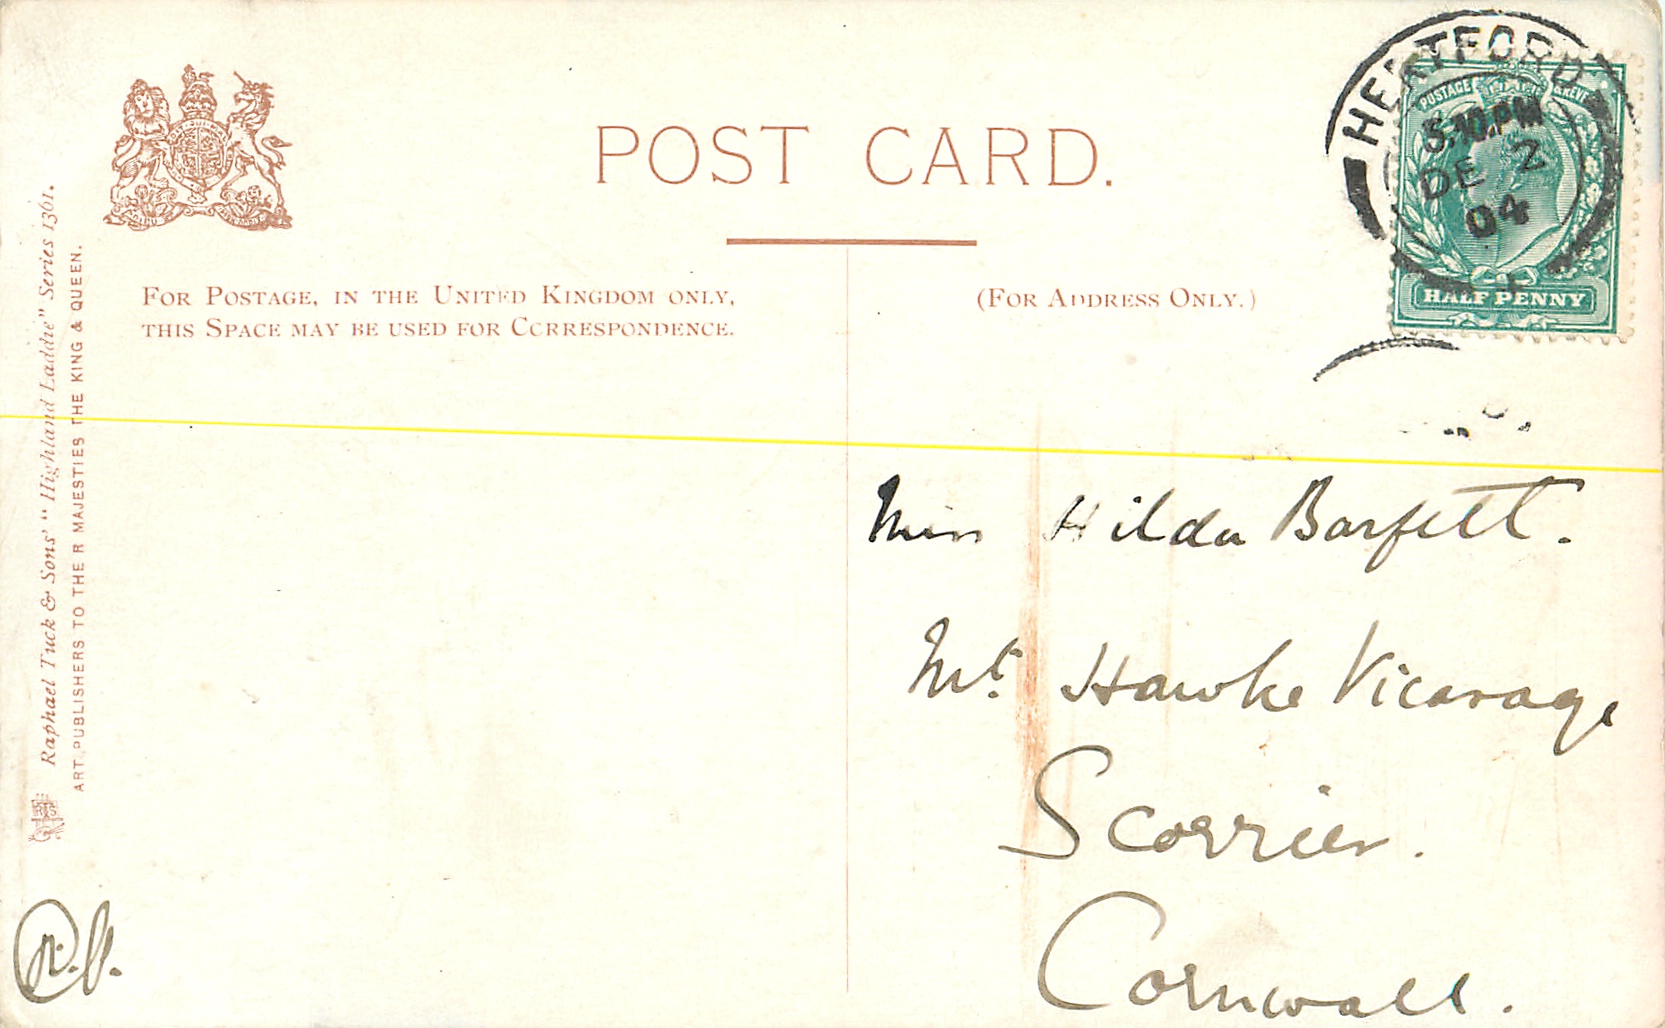 POST CARD.
FOR POSTAGE, IN THE UNITED KINGDOM ONLY,
THIS SPACE MAY BE USED FOR CORRESPONDENCE.
(FOR ADDRESS ONLY.)
Raphael Tuck & Sons' "Highland Laddie" Series 1361.
ART PUBLISHERS TO THEIR MAJESTIES THE KING & QUEEN.
HERTFORD
5.10.PM
DE 2
04
POSTAGE & REVENUE
HALF PENNY
Miss Hilda Barfett.
Mt. Hawke Vicarage
Scorrier.
Cornwall.